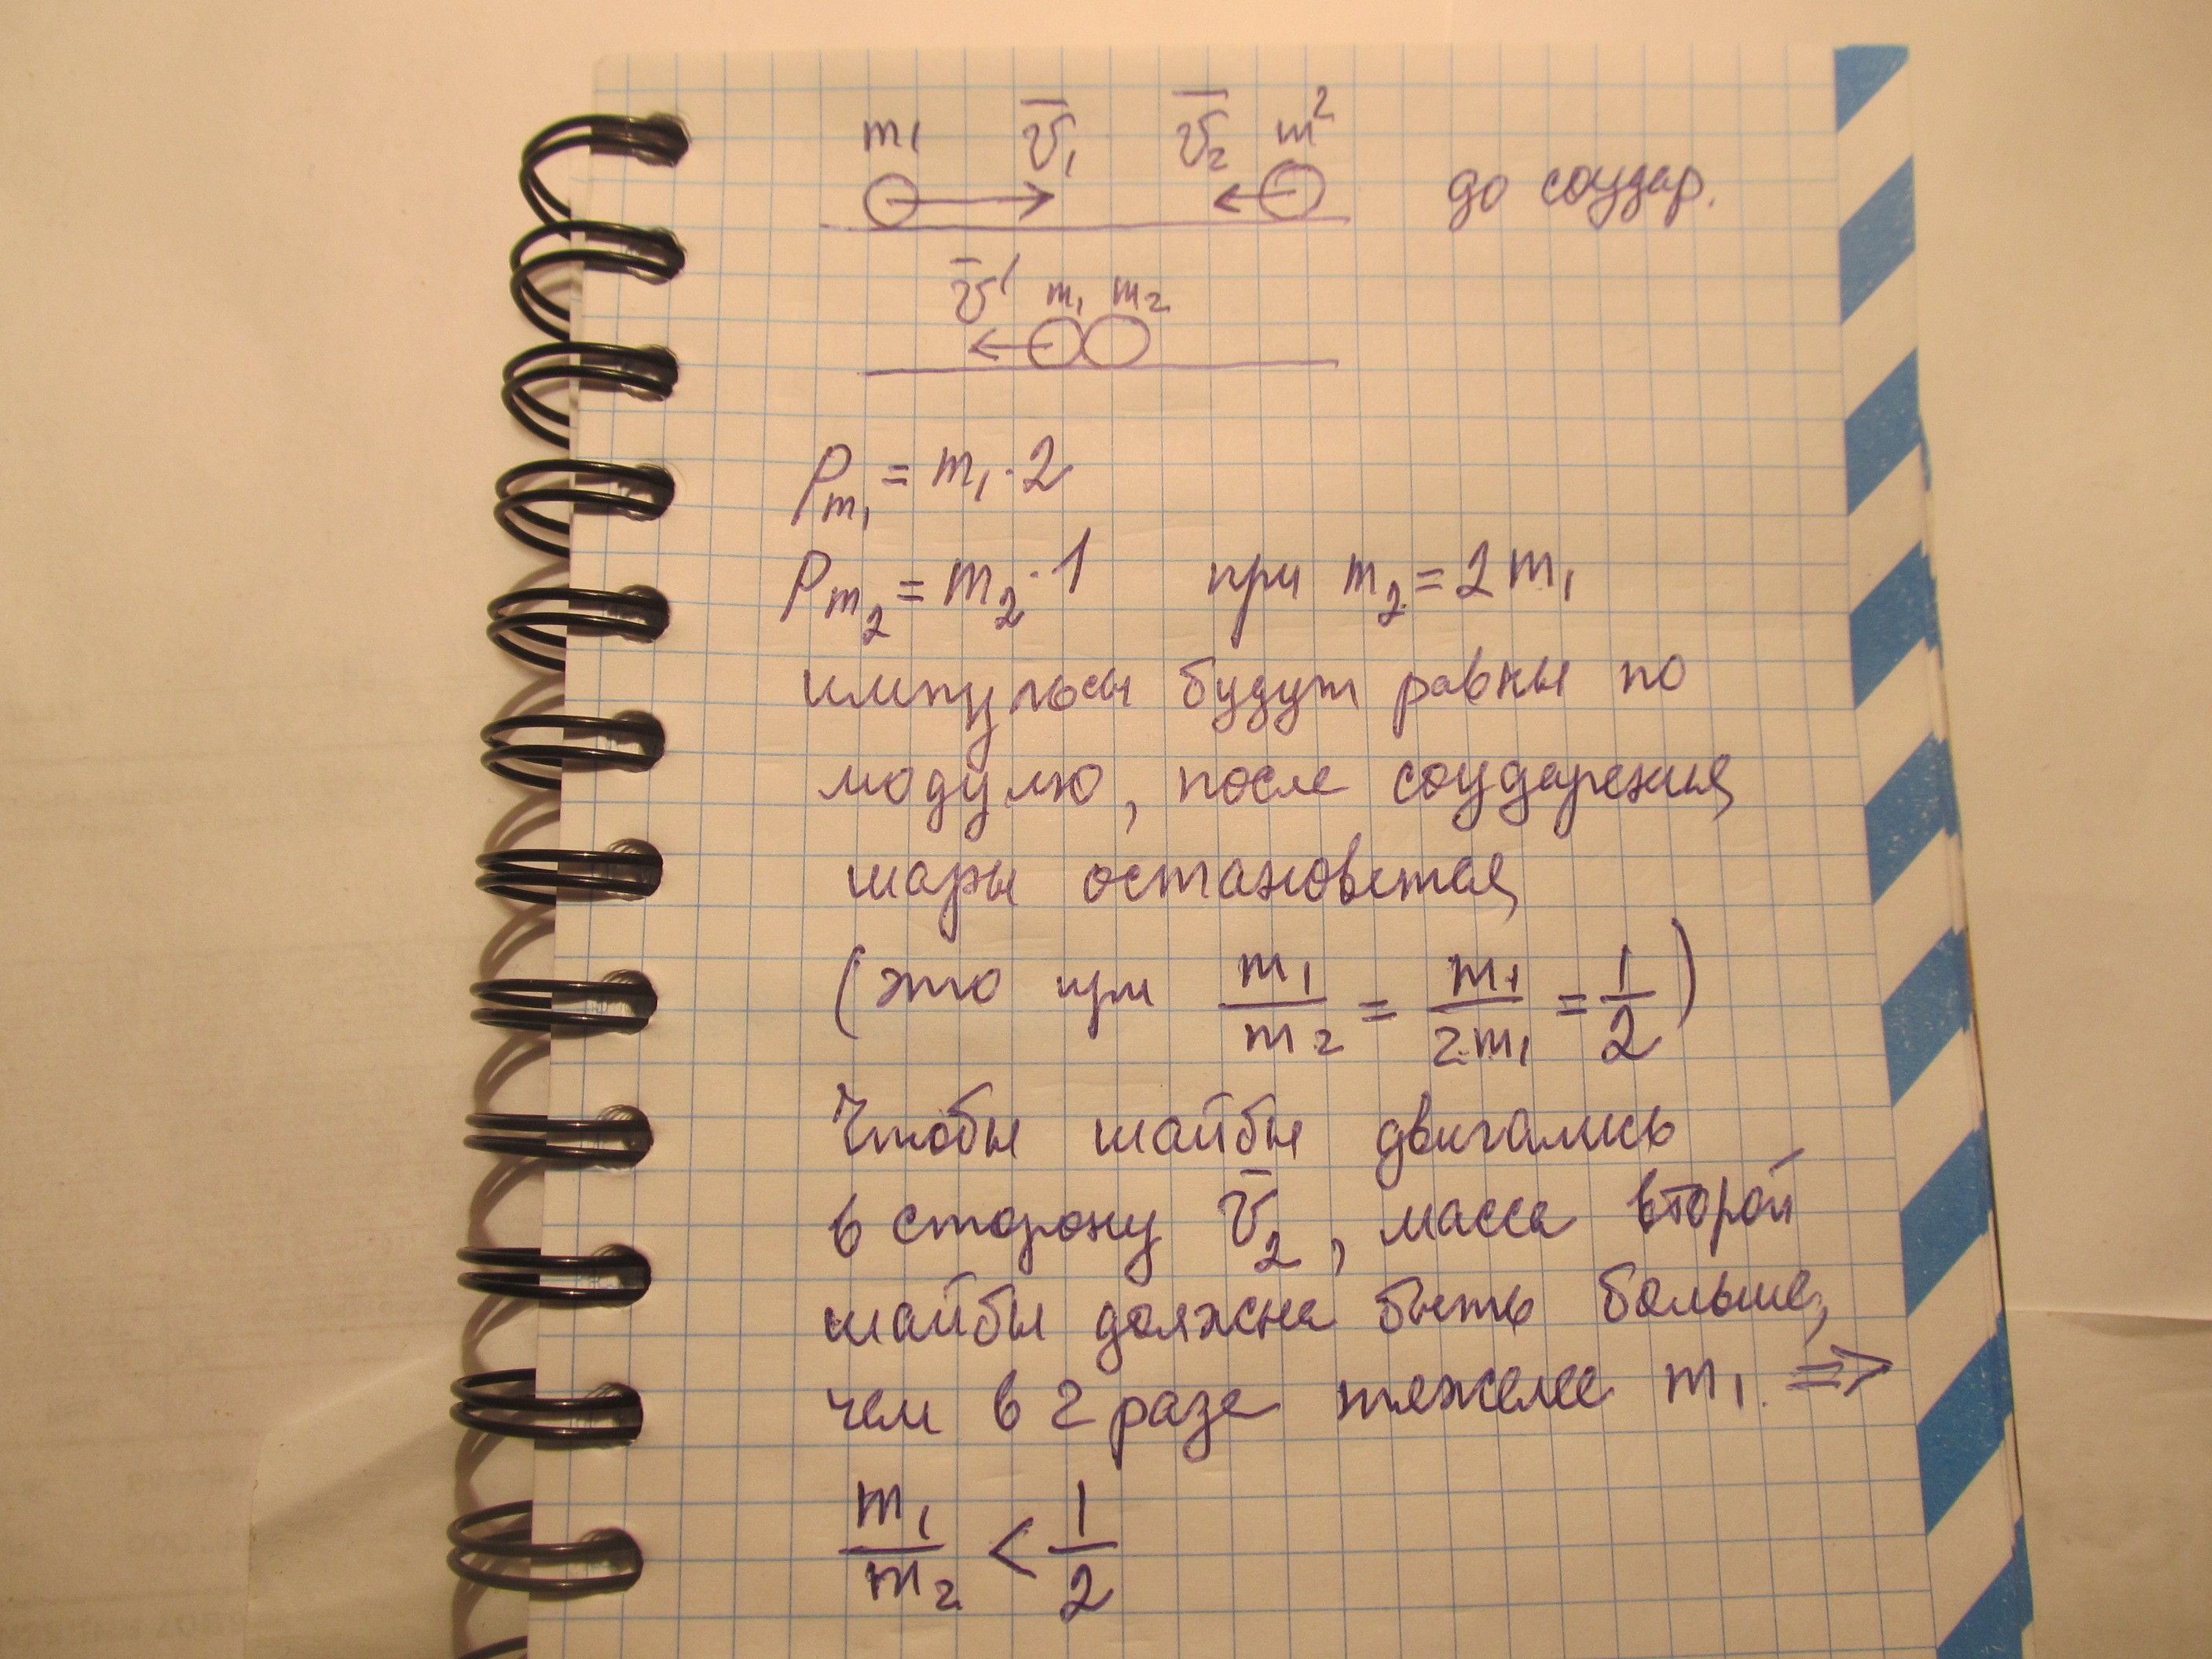 m₁ v̅₁ v̅₂ m² до соудар.
v̅′ m₁ m₂
P_m₁ = m₁ · 2
P_m₂ = m₂ · 1 при m₂ = 2m₁
импульсы будут равны по
модулю, после соударения
шары остановятся
(это при m₁/m₂ = m₁/2m₁ = 1/2)
Чтобы шайбы двигались
в сторону v̅₂, масса второй
шайбы должна быть больше,
чем в 2 раза тяжелее m₁. ⇒
m₁/m₂ < 1/2